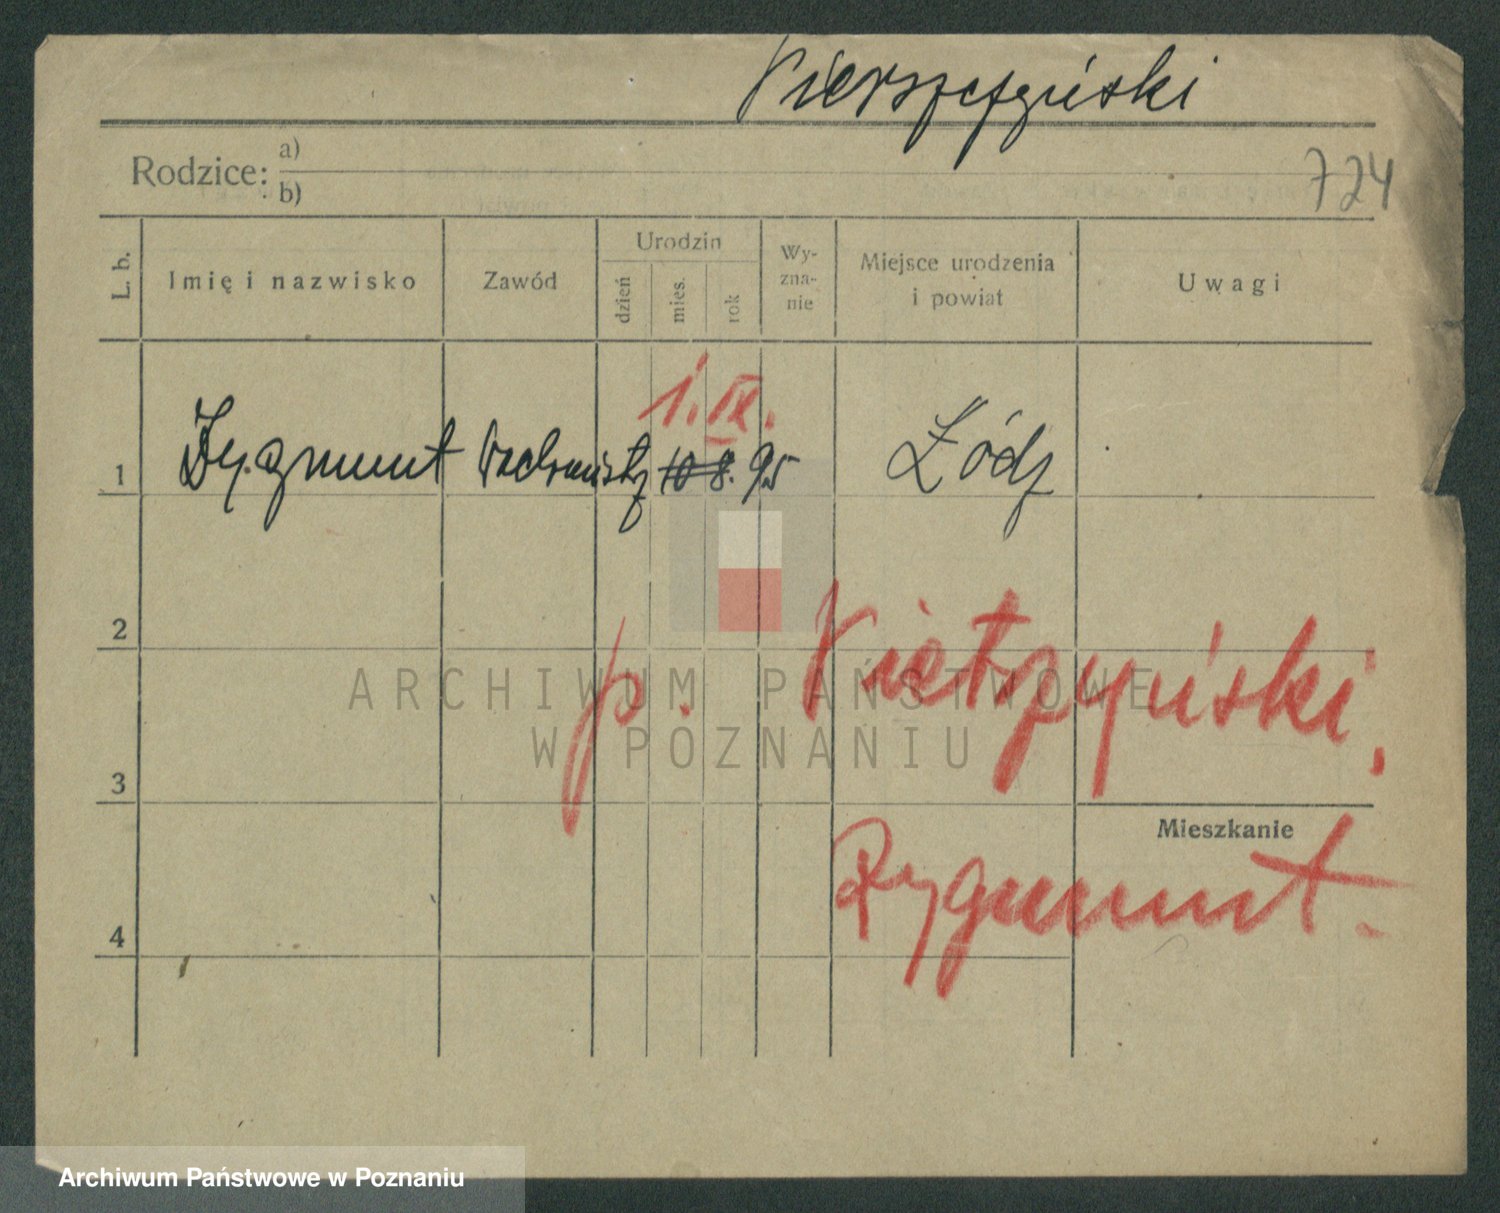 Kierszczyński
Rodzice: a)
b)
724
L. b.
Imię i nazwisko
Zawód
Urodzin
dzień
mies.
rok
Wy-
zna-
nie
Miejsce urodzenia
i powiat
Uwagi
1. IX.
1 Zygmunt Wachmistrz 10 8. 95 Łódź
2
p. Kietrzyński,
3
Mieszkanie
Zygmunt.
4
ARCHIWUM PAŃSTWOWE
W POZNANIU
Archiwum Państwowe w Poznaniu